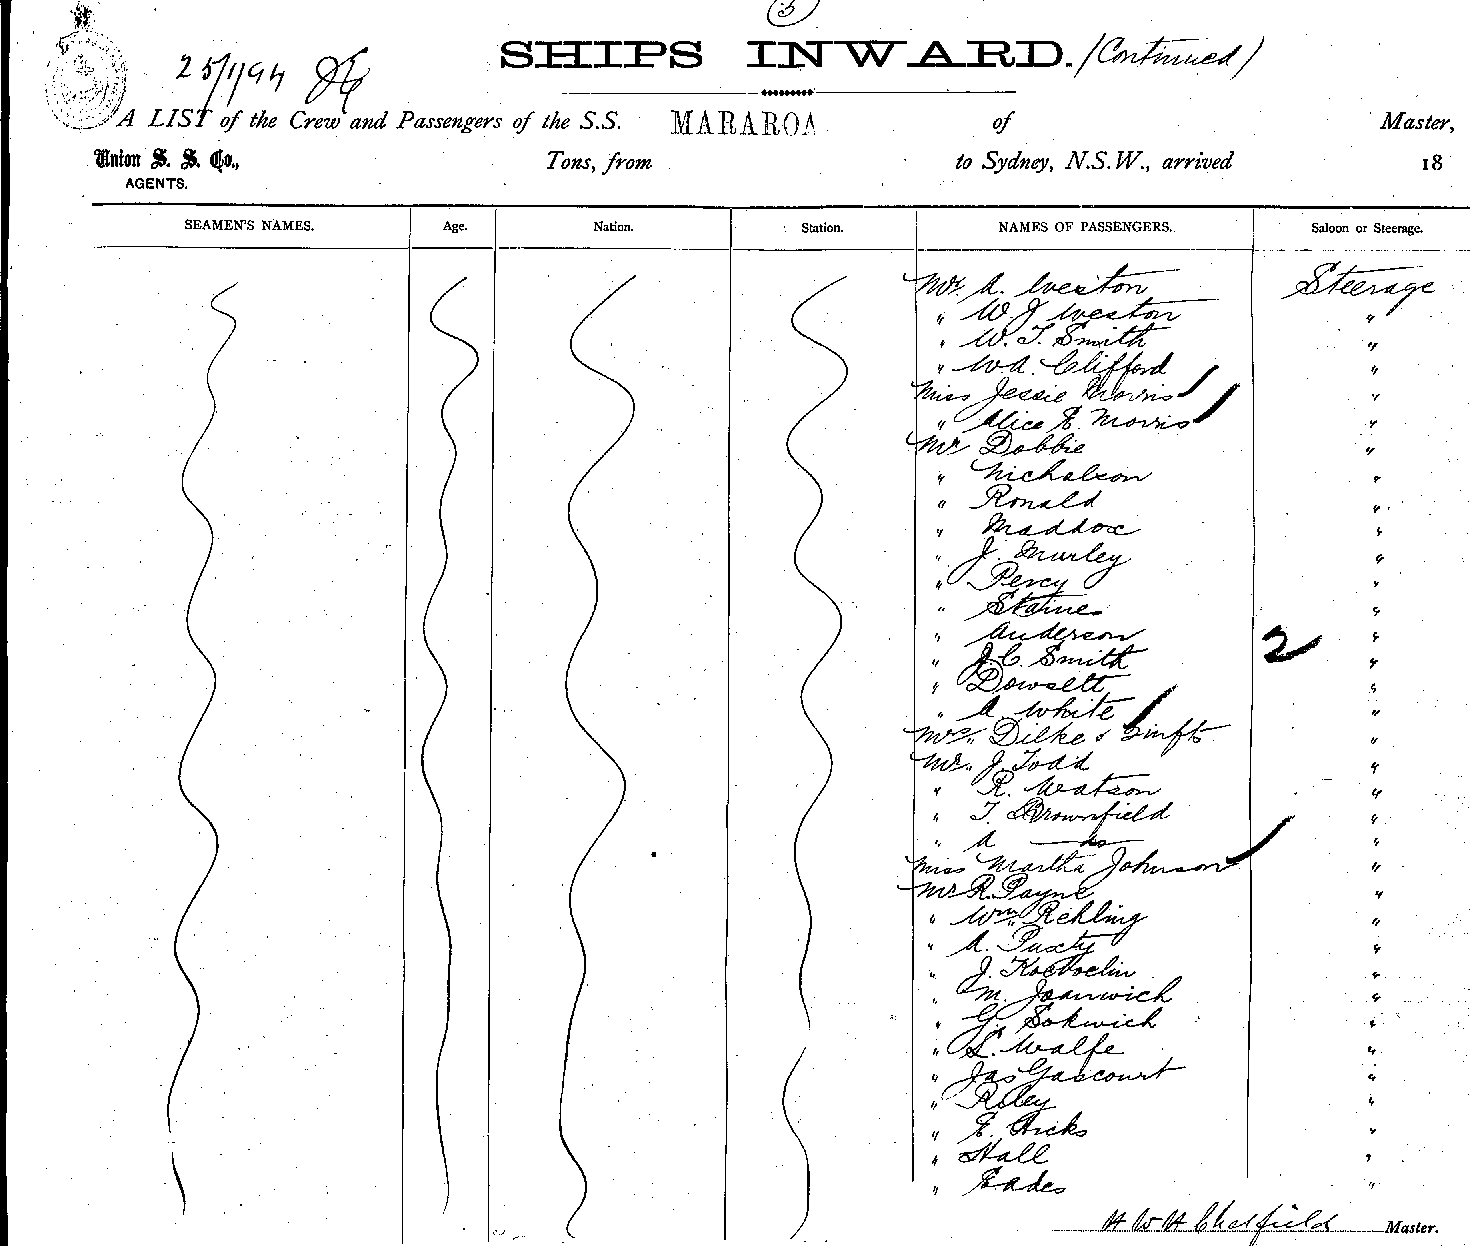 5
SHIPS INWARD. (Continued)
25/1/94
A LIST of the Crew and Passengers of the S.S. MARAROA of Master,
Union S. S. Co., Tons, from to Sydney, N.S.W., arrived 18
AGENTS.
SEAMEN'S NAMES. Age. Nation. Station. NAMES OF PASSENGERS. Saloon or Steerage.
Mr. A. Weston Steerage
" W. J Weston "
" W. T. Smith "
" W.A. Clifford "
Miss Jessie Morris "
" Alice E. Morris "
Mr Dobbie "
" Nicholson "
" Ronald "
" Maddox "
" J. Murley "
" Percy "
" Staines "
" Anderson 2 "
" J.C. Smith "
" Dowsett "
" A White "
Mrs. Dilke & Infts "
Mr. J. Todd "
" R. Watson "
" T. Brownfield "
" A —do— "
Miss Martha Johnson "
Mr R. Payne "
" Wm. Rehling "
" A. Puxty "
" J. "
" M. Joanwich "
" G. Sokwich "
" L. Walfe "
" Jas Gascourt "
" Riley "
" E. Hicks "
" Hall "
" Eades "
H W H Chatfield Master.